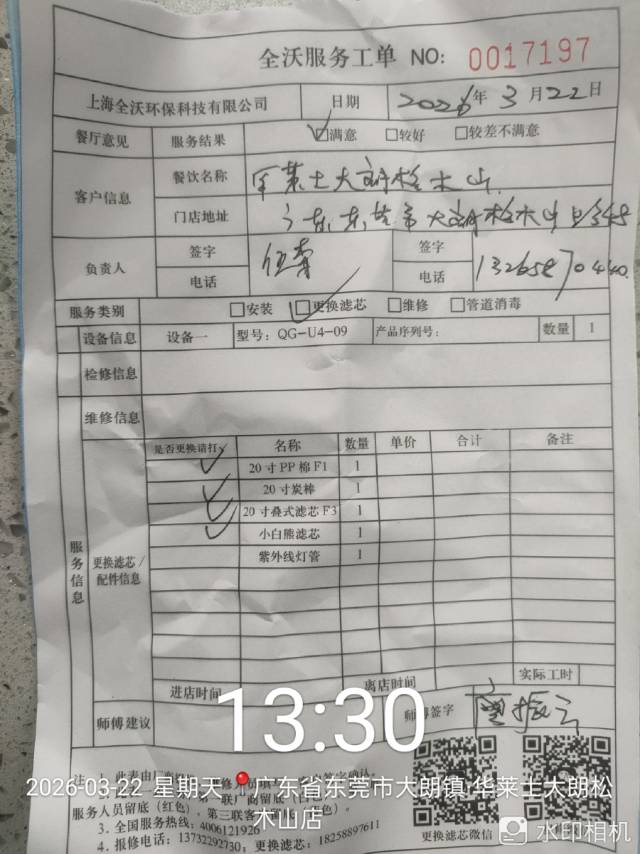 全沃服务工单 NO: 0017197
上海全沃环保科技有限公司 日期 2026年3月22日
餐厅意见 服务结果 满意 较好 较差不满意
客户信息 餐饮名称 华莱士大朗松木山
门店地址 广东东莞市大朗松木山
负责人 签字 签字
电话 电话 13265870440
服务类别 安装 更换滤芯 维修 管道消毒
设备信息 设备一 型号: QG-U4-09 产品序列号: 数量 1
检修信息
维修信息
服务信息
更换滤芯/配件信息
是否更换请打√ 名称 数量 单价 合计 备注
20寸PP棉F1 1
20寸炭棒 1
20寸叠式滤芯F3 1
小白熊滤芯 1
紫外线灯管 1
实际工时
进店时间 离店时间
师傅建议 师傅签字
13:30
注: 1. 此表由
签字确认。
2026-03-22 星期天 广东省东莞市大朗镇·华莱士大朗松木山店
服务人员留底（红色），第三联客
3. 全国服务热线: 4006121926
4. 报修电话: 13732292730; 更换滤芯: 18258897611
更换滤芯微信
水印相机